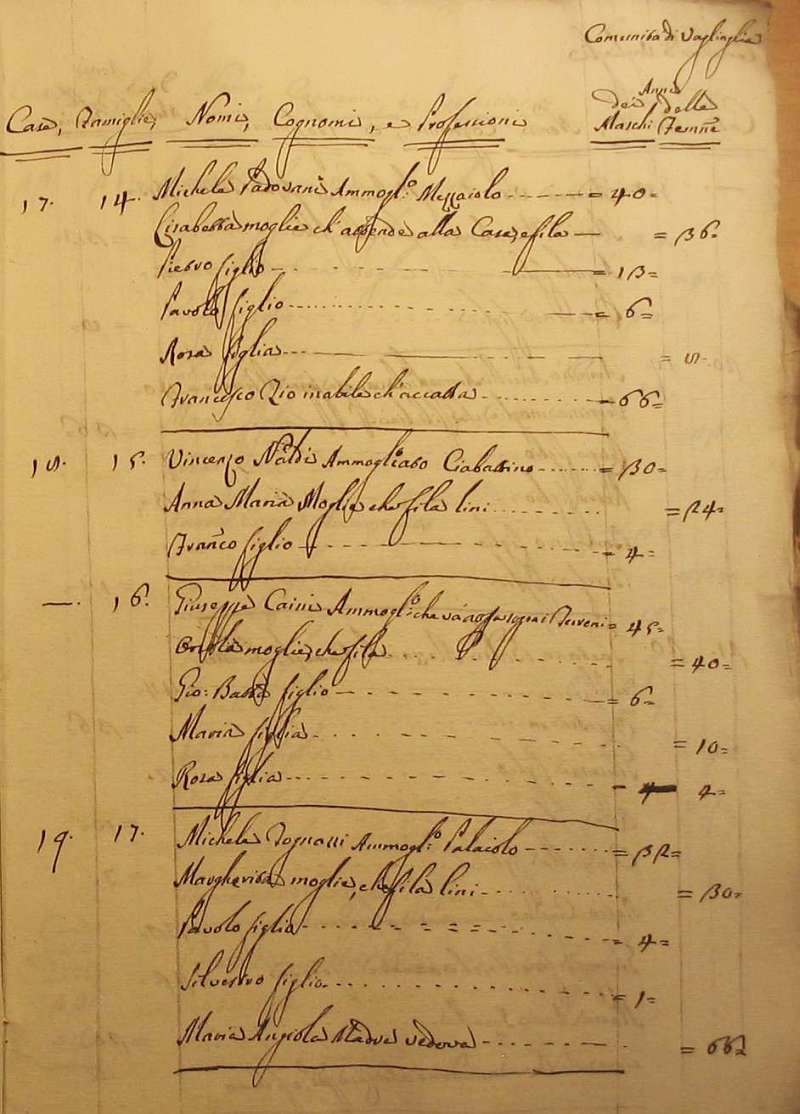 Comunità di Vagliaglia
Anni
dei delle
Case, Famiglie, Nomi, Cognomi, e Professioni Maschi Femne
17. 14. Michele Padovani Ammogl.o Mezzaiolo = 40=
Lisabetta moglie ch'attende alla Casa, e fila = 36=
Pietro figlio = 13=
Pavolo figlio = 6=
Rosa figlia = 8=
Francesco Zio inabile ch'accatta = 66=
18. 15. Vincenzo Naldi Ammogliato Ciabattino = 30=
Anna Maria Moglie che fila lini = 24=
Franco figlio = 4=
— 16. Giuseppe Caini Ammogl.o che va a opra = 45=
Orsola moglie, che fila = 40=
Gio: Batta figlio = 6=
Maria figlia = 10=
Rosa figlia 4=
19. 17. Michele Tognazzi Ammogl.o Palaiolo = 32=
Margherita moglie, che fila lini = 30=
Pavolo figlio = 4=
Silvestro figlio = 1=
Maria Angiola Madre vedova = 66